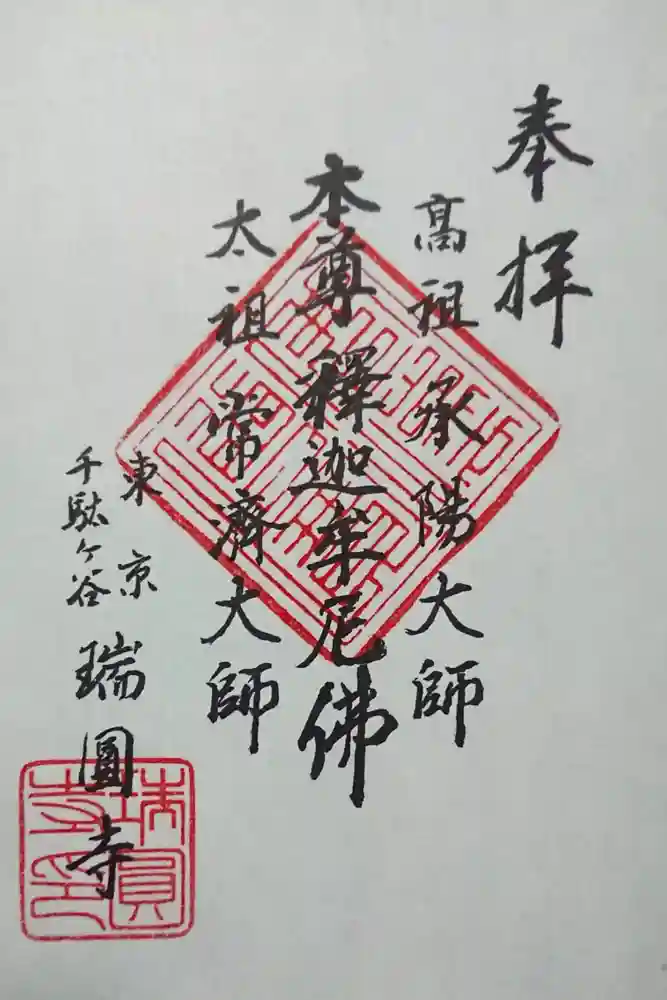 奉拝
高祖承陽大師
本尊釋迦牟尼佛
太祖常濟大師
東京
千駄ヶ谷
瑞圓寺
瑞圓
寺印